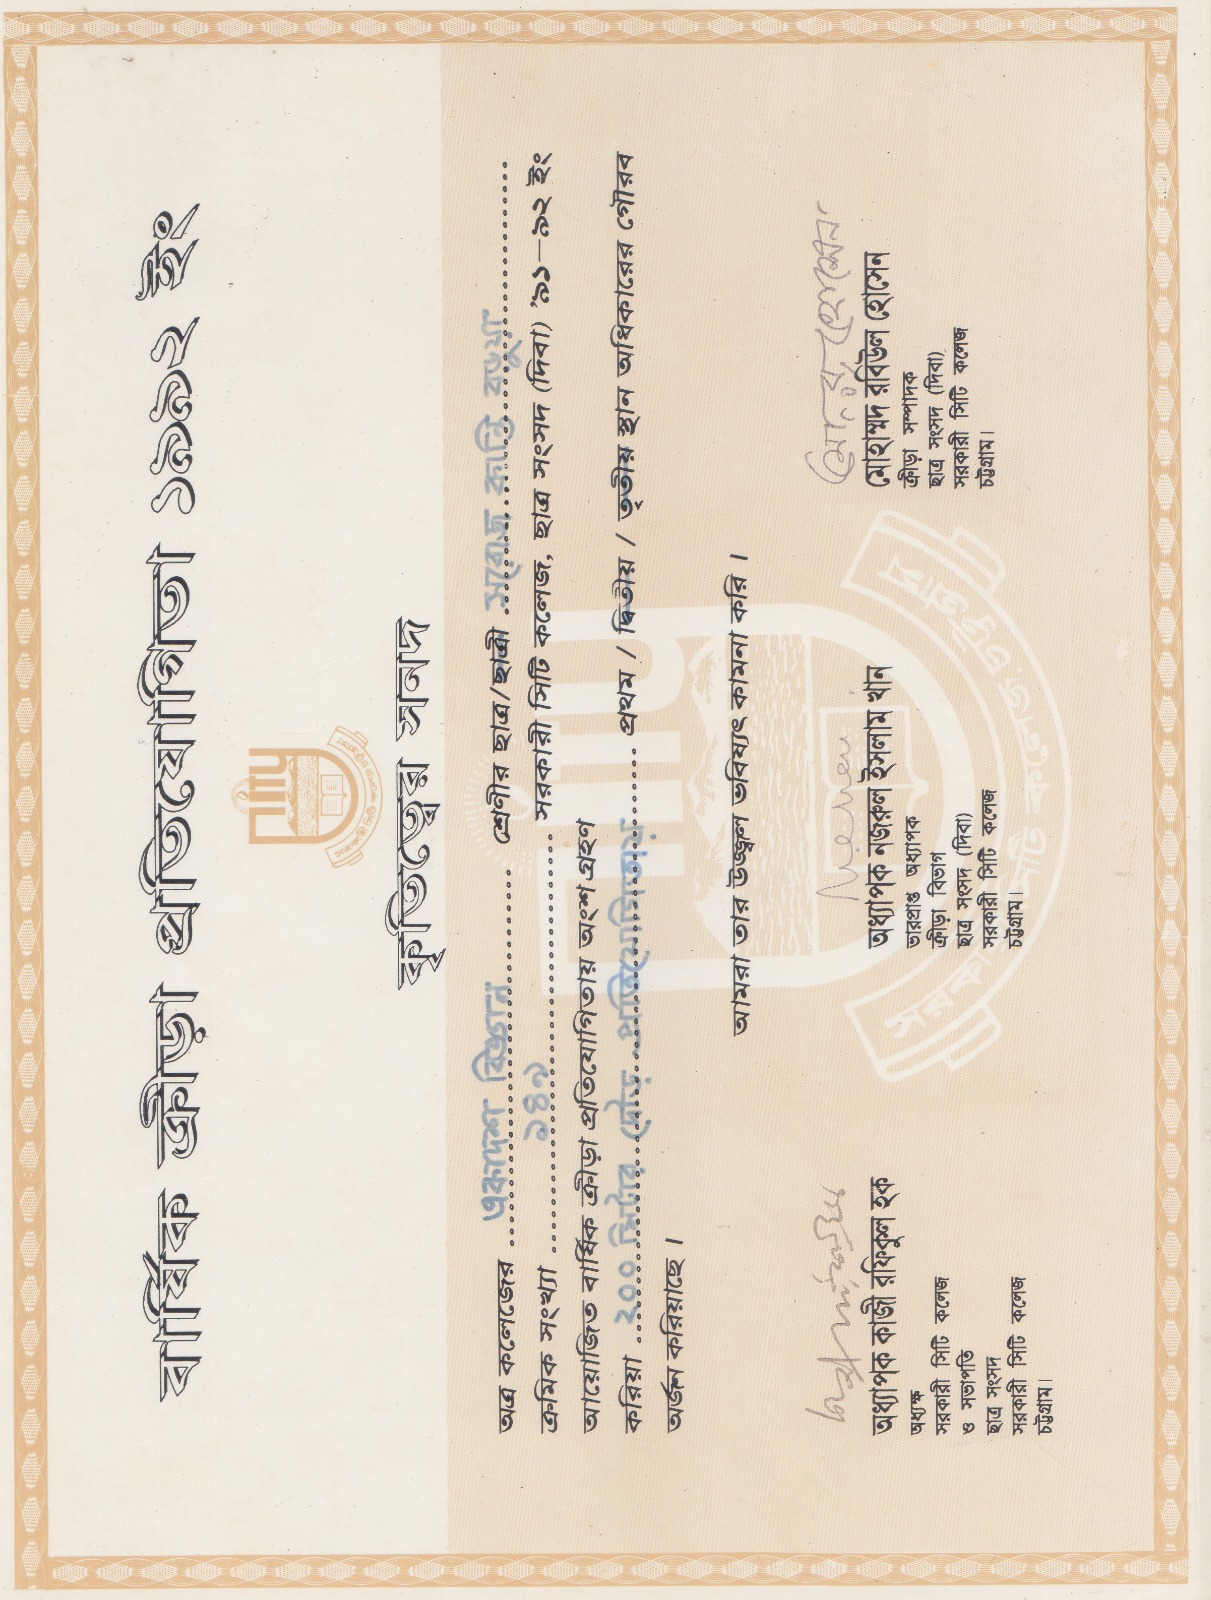 বার্ষিক ক্রীড়া প্রতিযোগিতা ১৯৯২ ইং
সরকারী সিটি কলেজ চট্টগ্রাম
কৃতিত্বের সনদ
অত্র কলেজের একাদশ বিজ্ঞান শ্রেণীর ছাত্র/ছাত্রী সরোজ কান্তি বড়ুয়া
ক্রমিক সংখ্যা ১৪৯ সরকারী সিটি কলেজ, ছাত্র সংসদ (দিবা) '৯১-৯২ ইং
আয়োজিত বার্ষিক ক্রীড়া প্রতিযোগিতায় অংশ গ্রহণ
করিয়া ২০০ মিটার দৌড় প্রতিযোগিতায় প্রথম / দ্বিতীয় / তৃতীয় স্থান অধিকারের গৌরব
অর্জন করিয়াছে।
আমরা তার উজ্জ্বল ভবিষ্যৎ কামনা করি।
অধ্যাপক কাজী রফিকুল হক
অধ্যক্ষ
সরকারী সিটি কলেজ
ও সভাপতি
ছাত্র সংসদ
সরকারী সিটি কলেজ
চট্টগ্রাম।
অধ্যাপক নজরুল ইসলাম খান
ভারপ্রাপ্ত অধ্যাপক
ক্রীড়া বিভাগ
ছাত্র সংসদ (দিবা)
সরকারী সিটি কলেজ
চট্টগ্রাম।
মোহাম্মদ রবিউল হোসেন
ক্রীড়া সম্পাদক
ছাত্র সংসদ (দিবা)
সরকারী সিটি কলেজ
চট্টগ্রাম।
সরকারী সিটি কলেজ, চট্টগ্রাম